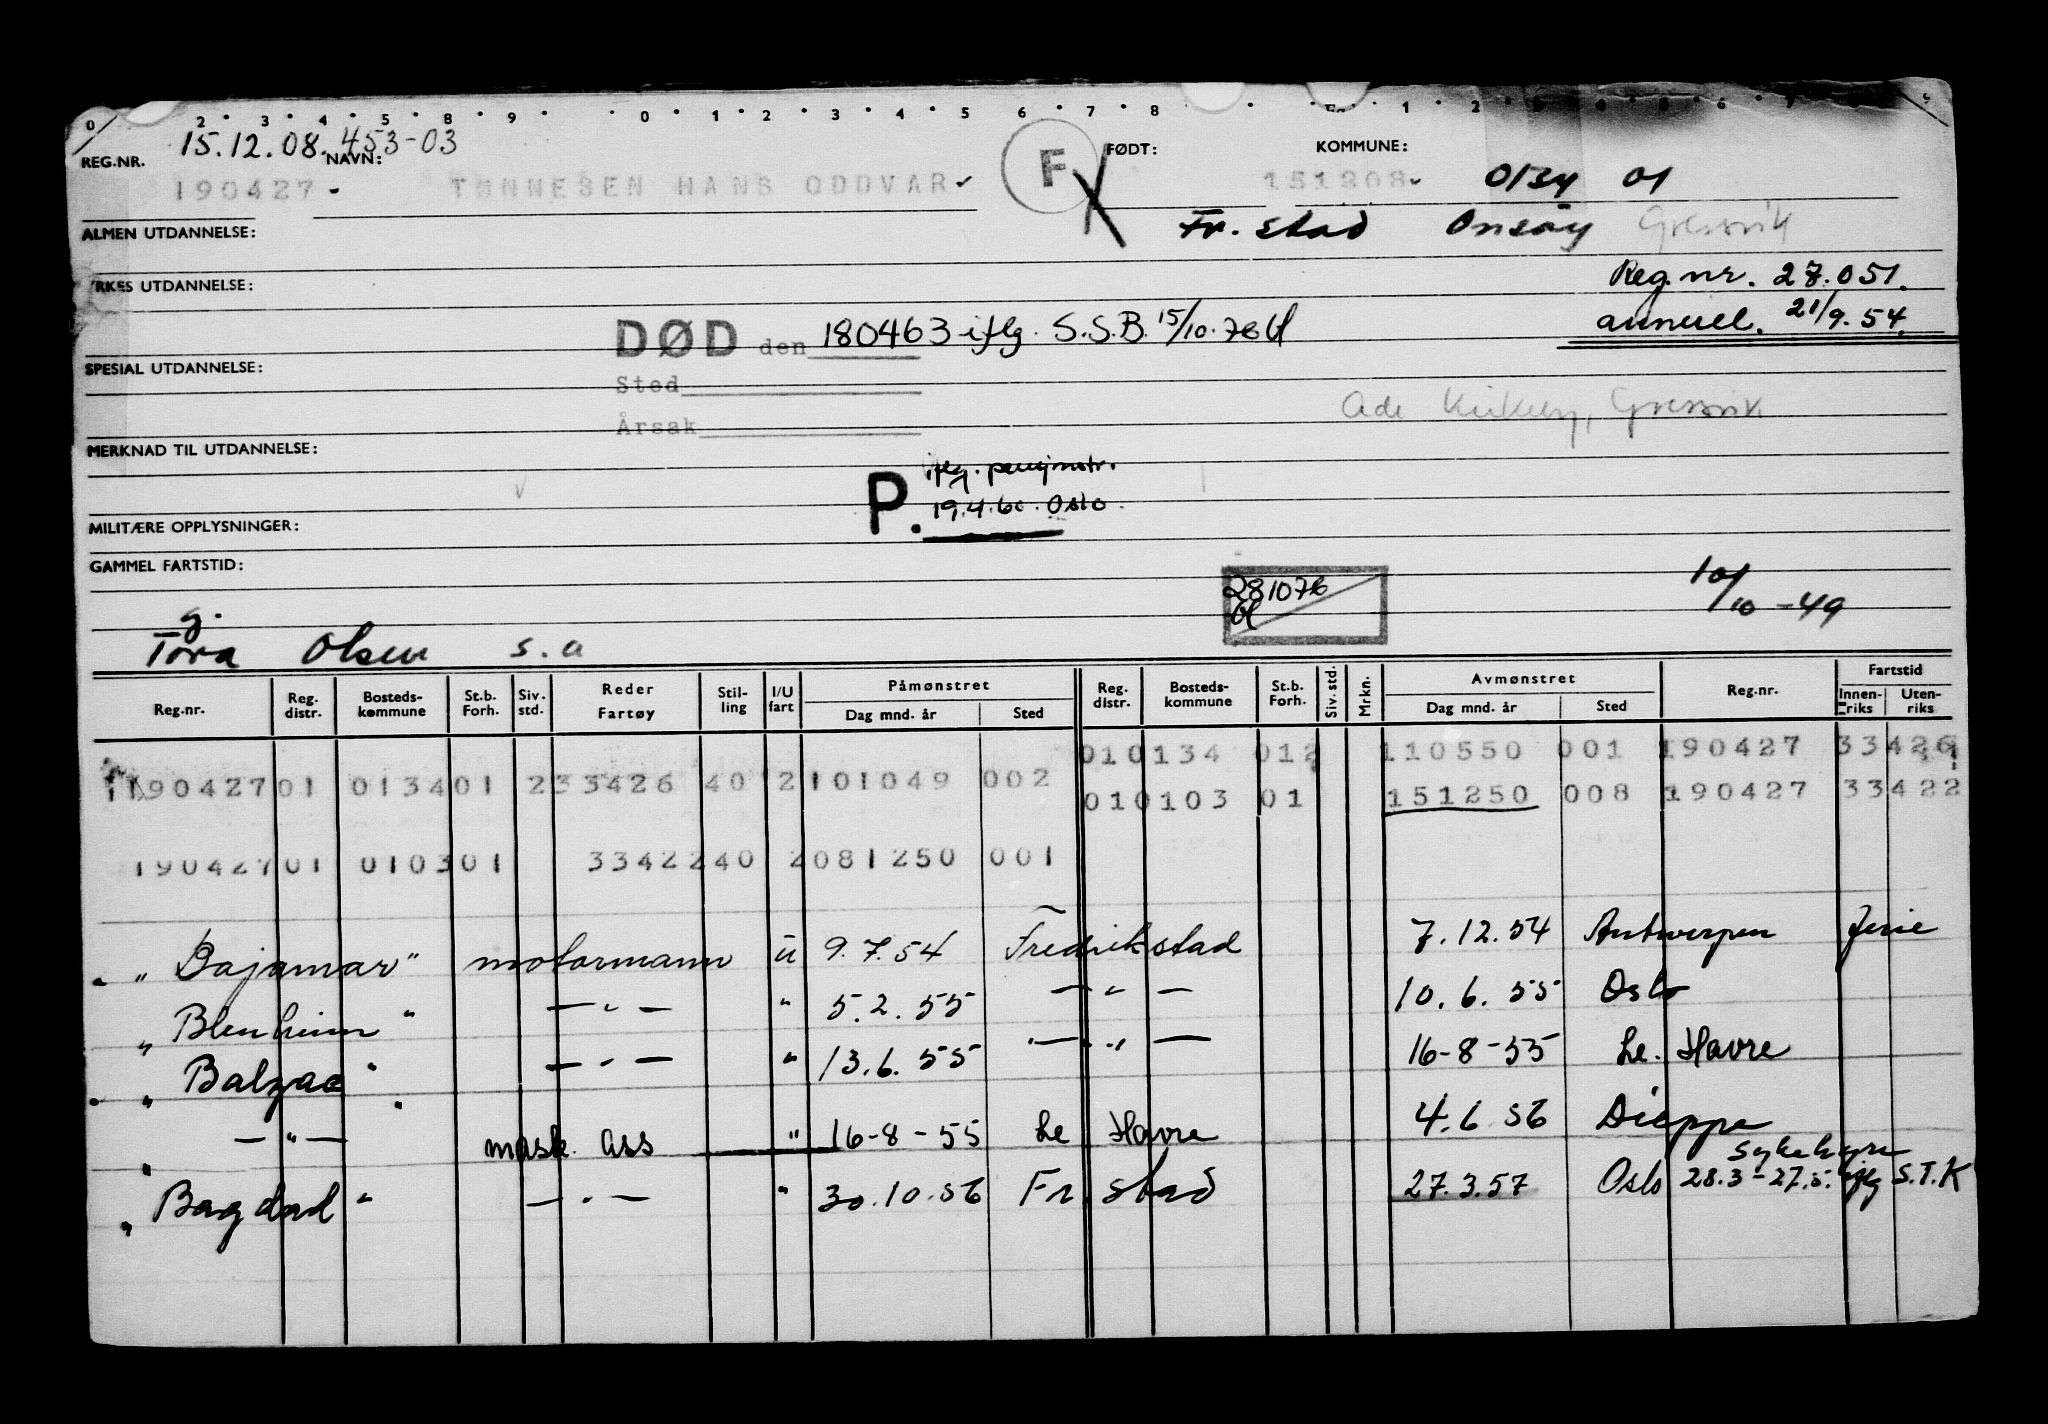 0 2 3 4 5 8 9 0 1 2 3 4 5 6 7 8 1 2 3 4 5 6 7 9
15.12.08.453-03
REG.NR. NAVN: F FØDT: KOMMUNE:
190427- TØNNESEN HANS ODDVAR 151208 0134 01
ALMEN UTDANNELSE: Fr. stad Onsøy Gressvik
YRKES UTDANNELSE: Reg.nr. 27.051.
annull. 21/9.54.
DØD den 180463 iflg. S.S.B. 15/10.76
SPESIAL UTDANNELSE:
Sted
Årsak
Ade Kirkeby, Gressvik
MERKNAD TIL UTDANNELSE:
P. iflg. pensjonstr.
19.4.60. Oslo.
MILITÆRE OPPLYSNINGER:
GAMMEL FARTSTID:
281076
10/10-49
g.
Tora Olsen s.a
Reg.nr. Reg. distr. Bosteds-kommune St.b. Forh. Siv. std. Reder Fartøy Stil-ling I/U fart Påmønstret Dag mnd. år Sted Reg. distr. Bosteds-kommune St.b. Forh. Siv. std. Mrkn. Avmønstret Dag mnd. år Sted Reg.nr. Fartstid Innen-riks Uten-riks
010134 012 110550 001 190427 33426
190427 01 013401 2 33426 40 2 101049 002
010103 01 151250 008 190427 33422
190427 01 010301 33422 40 2 081250 001
" Bajamar " motormann u 9.7.54 Fredrikstad 7.12.54 Antwerpen ferie
" Blenheim " — " — " 5.2.55 — " — 10.6.55 Oslo
" Balzac " — " — " 13.6.55 — " — 16-8-55 Le. Havre
" — " — " mask. ass " 16-8-55 Le Havre 4.6.56 Dieppe
" Bagdad " — " — " 30.10.56 Fr. stad 27.3.57 Oslo sykehjem 28.3-27.5. iflg S.T.K